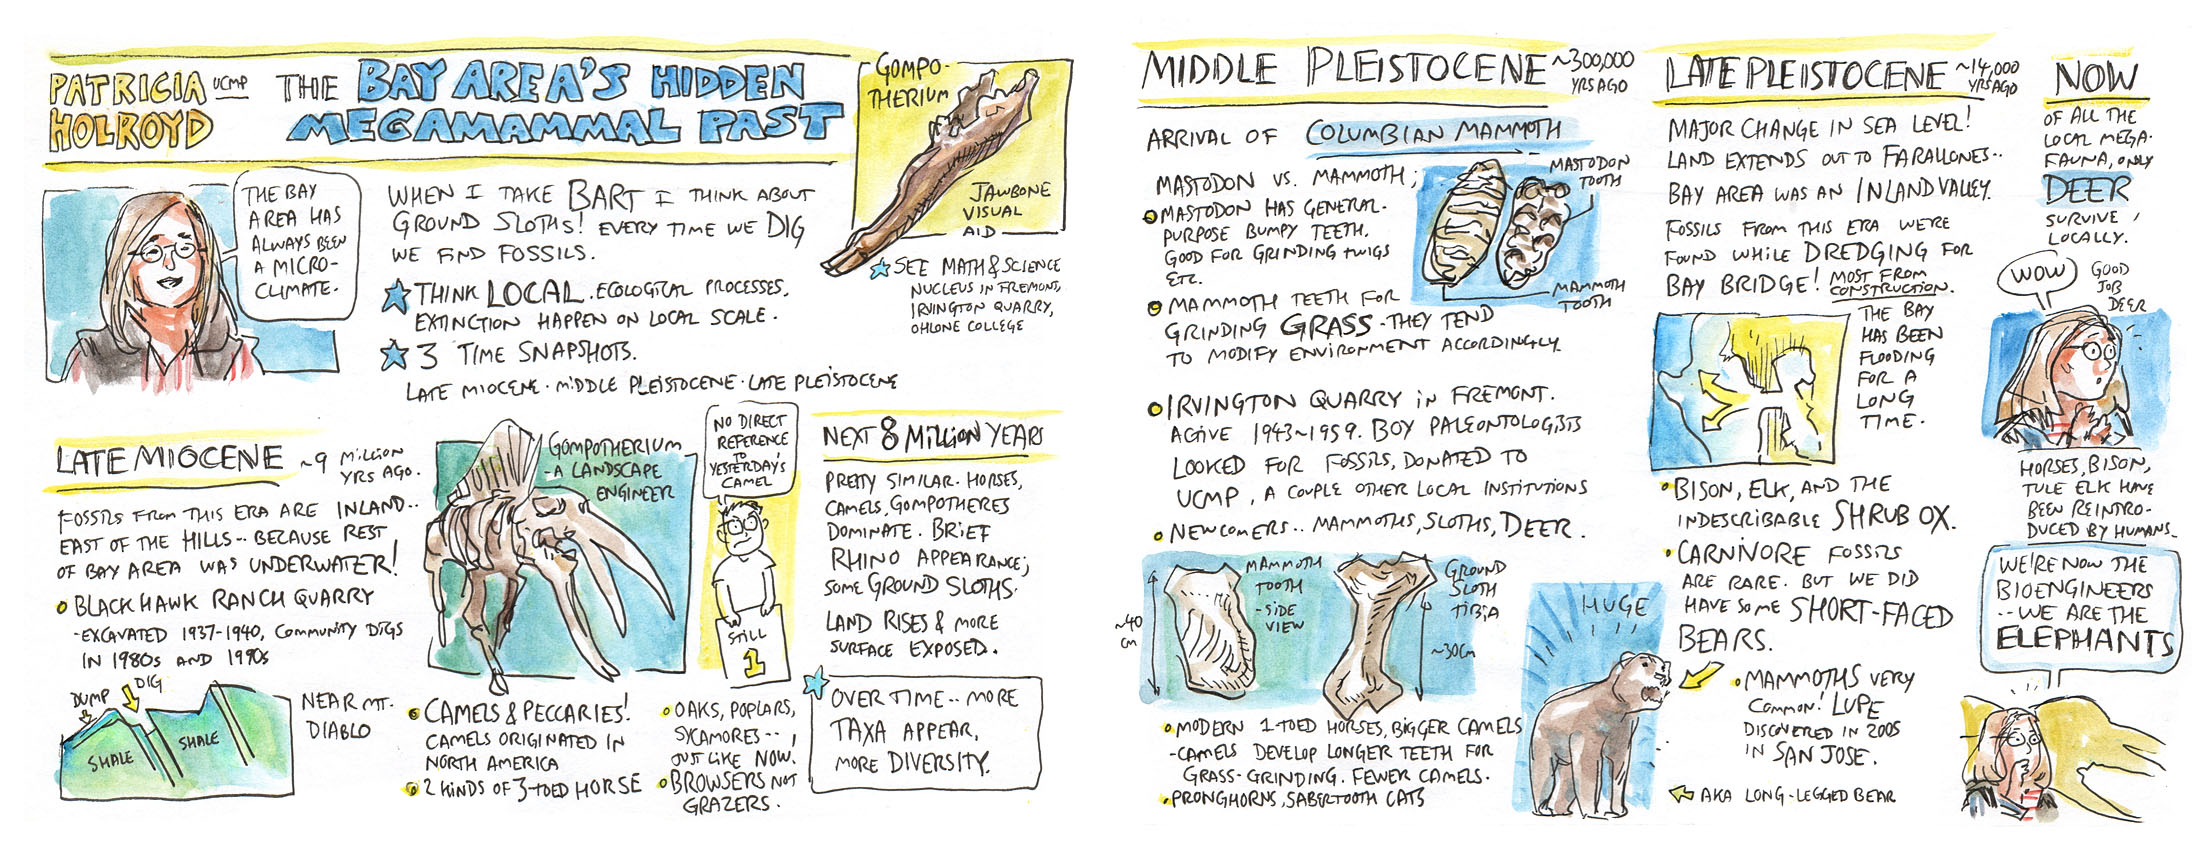 PATRICIA HOLROYD
UCMP
THE BAY AREA'S HIDDEN
MEGAMAMMAL PAST
THE BAY
AREA HAS
ALWAYS BEEN
A MICRO-
CLIMATE.
WHEN I TAKE BART I THINK ABOUT
GROUND SLOTHS! EVERY TIME WE DIG
WE FIND FOSSILS.
THINK LOCAL. ECOLOGICAL PROCESSES,
EXTINCTION HAPPEN ON LOCAL SCALE.
3 TIME SNAPSHOTS.
LATE MIOCENE · MIDDLE PLEISTOCENE · LATE PLEISTOCENE
GOMPO-
THERIUM
JAWBONE
VISUAL
AID
SEE MATH & SCIENCE
NUCLEUS IN FREMONT,
IRVINGTON QUARRY,
OHLONE COLLEGE
LATE MIOCENE ~9 MILLION
YRS AGO.
FOSSILS FROM THIS ERA ARE INLAND..
EAST OF THE HILLS.. BECAUSE REST
OF BAY AREA WAS UNDERWATER!
BLACKHAWK RANCH QUARRY
-EXCAVATED 1937-1940, COMMUNITY DIGS
IN 1980s AND 1990s
DUMP
DIG
SHALE
SHALE
NEAR MT.
DIABLO
GOMPOTHERIUM
-A LANDSCAPE
ENGINEER
CAMELS & PECCARIES!
CAMELS ORIGINATED IN
NORTH AMERICA
2 KINDS OF 3-TOED HORSE
NO DIRECT
REFERENCE
TO
YESTERDAY'S
CAMEL
STILL
1
OAKS, POPLARS,
SYCAMORES..,
JUST LIKE NOW.
BROWSERS NOT
GRAZERS.
NEXT 8 MILLION YEARS
PRETTY SIMILAR. HORSES,
CAMELS, GOMPOTHERES
DOMINATE. BRIEF
RHINO APPEARANCE;
SOME GROUND SLOTHS.
LAND RISES & MORE
SURFACE EXPOSED.
OVER TIME.. MORE
TAXA APPEAR,
MORE DIVERSITY.
MIDDLE PLEISTOCENE ~300,000
YRS AGO
ARRIVAL OF COLUMBIAN MAMMOTH
MASTODON VS. MAMMOTH;
MASTODON HAS GENERAL-
PURPOSE BUMPY TEETH.
GOOD FOR GRINDING TWIGS
ETC.
MAMMOTH TEETH FOR
GRINDING GRASS - THEY TEND
TO MODIFY ENVIRONMENT ACCORDINGLY.
MASTODON
TOOTH
MAMMOTH
TOOTH
IRVINGTON QUARRY IN FREMONT.
ACTIVE 1943~1959. BOY PALEONTOLOGISTS
LOOKED FOR FOSSILS, DONATED TO
UCMP, A COUPLE OTHER LOCAL INSTITUTIONS
NEWCOMERS.. MAMMOTHS, SLOTHS, DEER.
~40
CM
MAMMOTH
TOOTH
-SIDE
VIEW
GROUND
SLOTH
TIBIA
~30CM
MODERN 1-TOED HORSES, BIGGER CAMELS
-CAMELS DEVELOP LONGER TEETH FOR
GRASS-GRINDING. FEWER CAMELS.
PRONGHORNS, SABERTOOTH CATS
HUGE
LATE PLEISTOCENE ~14,000
YRS AGO
MAJOR CHANGE IN SEA LEVEL!
LAND EXTENDS OUT TO FARALLONES..
BAY AREA WAS AN INLAND VALLEY.
FOSSILS FROM THIS ERA WERE
FOUND WHILE DREDGING FOR
BAY BRIDGE! MOST FROM
CONSTRUCTION.
THE BAY
HAS BEEN
FLOODING
FOR A
LONG
TIME.
BISON, ELK, AND THE
INDESCRIBABLE SHRUB OX.
CARNIVORE FOSSILS
ARE RARE. BUT WE DID
HAVE SOME SHORT-FACED
BEARS.
MAMMOTHS VERY
COMMON! LUPE
DISCOVERED IN 2005
IN SAN JOSE.
AKA LONG-LEGGED BEAR
NOW
OF ALL THE
LOCAL MEGA-
FAUNA, ONLY
DEER
SURVIVE
LOCALLY.
WOW
GOOD
JOB
DEER
HORSES, BISON,
TULE ELK HAVE
BEEN REINTRO-
DUCED BY HUMANS.
WE'RE NOW THE
BIOENGINEERS
..WE ARE THE
ELEPHANTS